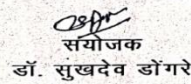 संयोजक
डॉ. सुखदेव डोंगरे